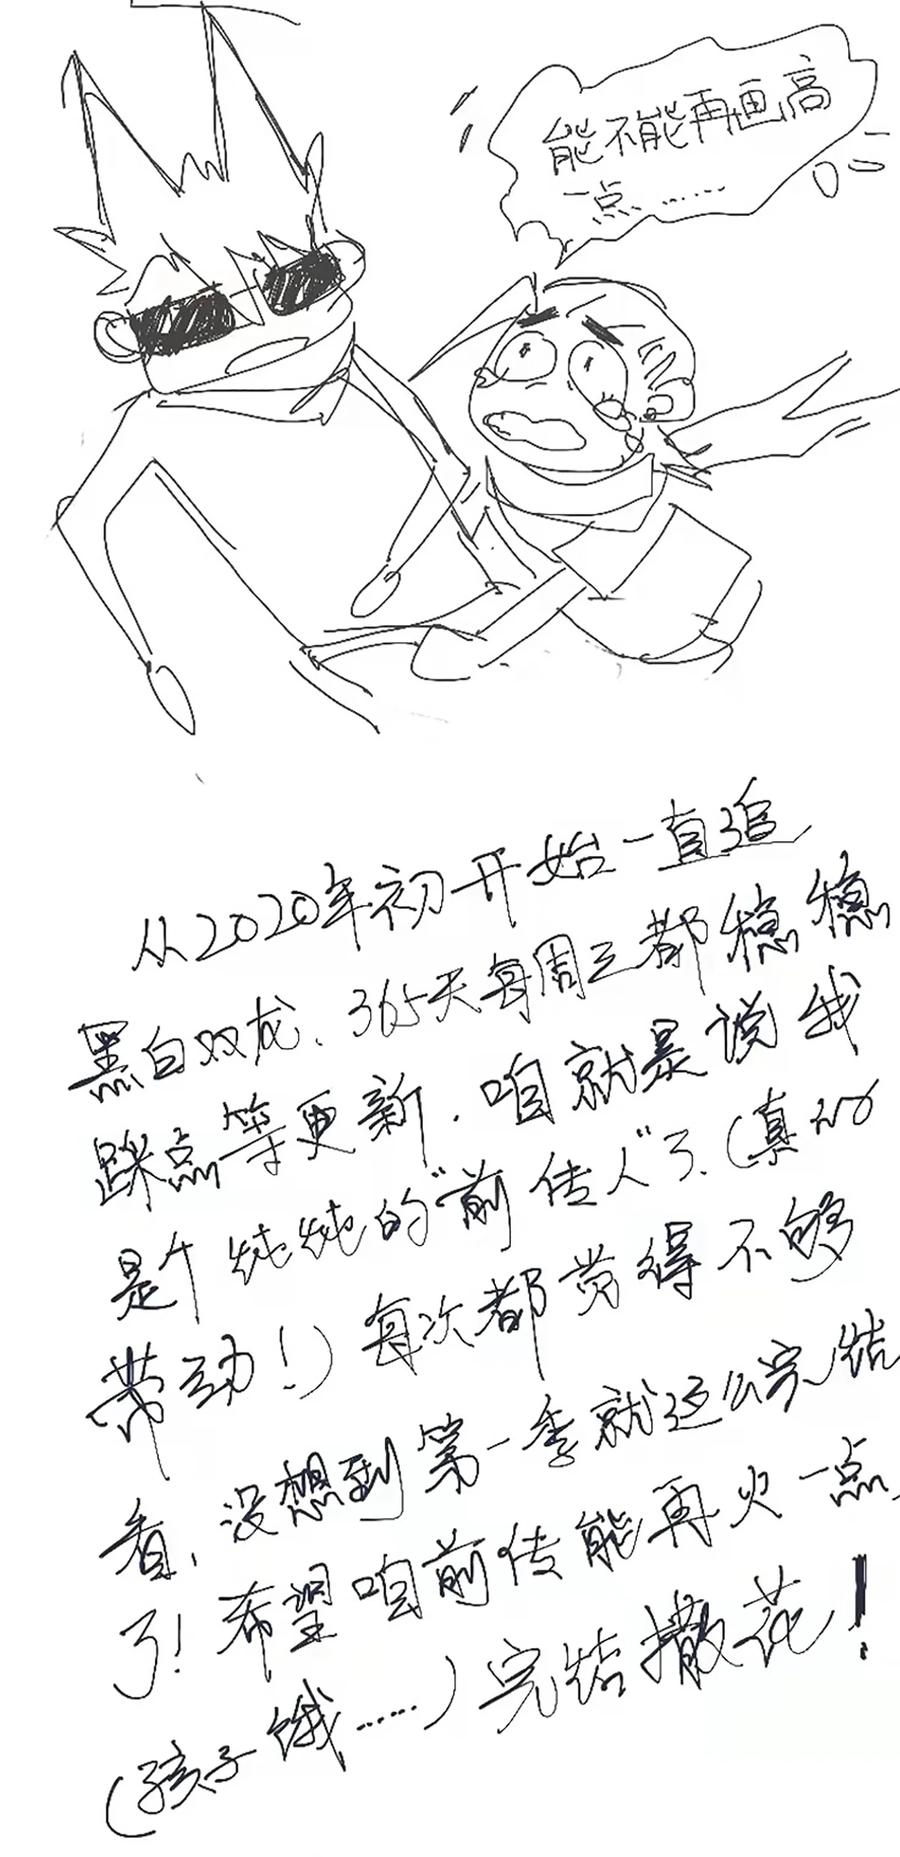 能不能再画高
一点……
从2020年初开始一直追
黑白双龙、365天每周三都稳稳
踩点等更新.咱就是说我
是个纯纯的"前传人"了.(真的
带动!)每次都觉得不够
看,没想到第一季就这么完结
了!希望咱前传能再火一点
(孩子饿……)完结撒花!